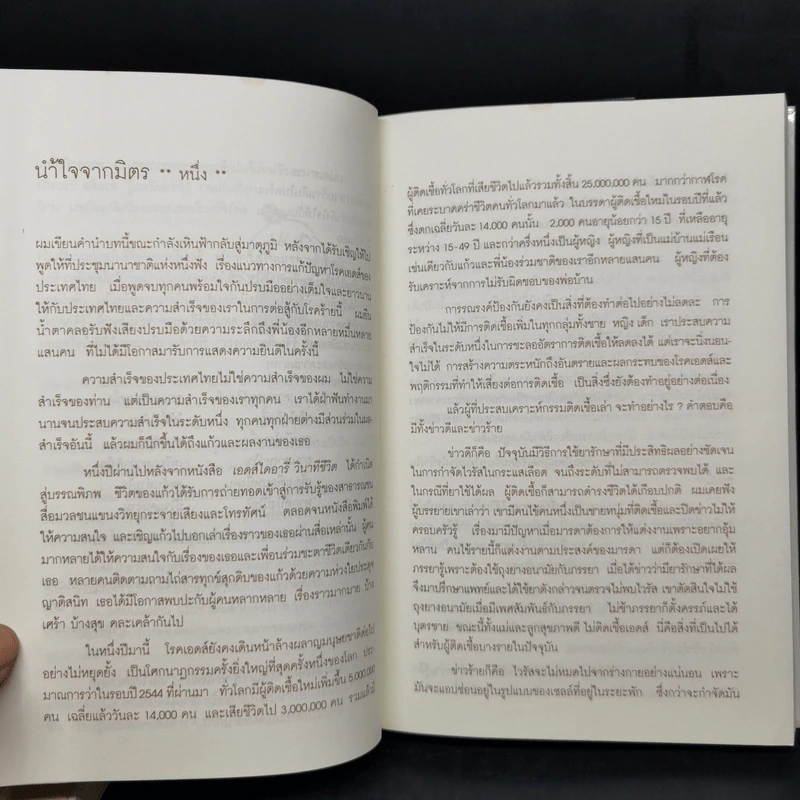 น้ำใจจากมิตร ·· หนึ่ง ··
ผมเขียนคำนำบทนี้ขณะกำลังเหินฟ้ากลับสู่มาตุภูมิ หลังจากได้รับเชิญให้ไป
พูดให้ที่ประชุมนานาชาติแห่งหนึ่งฟัง เรื่องแนวทางการแก้ปัญหาโรคเอดส์ของ
ประเทศไทย เมื่อพูดจบทุกคนพร้อมใจกันปรบมืออย่างเต็มใจและยาวนาน
ให้กับประเทศไทยและความสำเร็จของเราในการต่อสู้กับโรคร้ายนี้ ผมยืน
น้ำตาคลอรับฟังเสียงปรบมือด้วยความระลึกถึงพี่น้องอีกหลายหมื่นหลาย
แสนคน ที่ไม่ได้มีโอกาสมารับการแสดงความยินดีในครั้งนี้
ความสำเร็จของประเทศไทยไม่ใช่ความสำเร็จของผม ไม่ใช่ความ
สำเร็จของท่าน แต่เป็นความสำเร็จของเราทุกคน เราได้ฝ่าฟันทำงานมา
นานจนประสบความสำเร็จในระดับหนึ่ง ทุกคนทุกฝ่ายต่างมีส่วนร่วมในผล-
สำเร็จอันนี้ แล้วผมก็นึกขึ้นได้ถึงแก้วและผลงานของเธอ
หนึ่งปีผ่านไปหลังจากหนังสือ เอดส์ไดอารี่ วินาทีชีวิต ได้กำเนิด
สู่บรรณพิภพ ชีวิตของแก้วได้รับการถ่ายทอดเข้าสู่การรับรู้ของสาธารณชน
สื่อมวลชนแขนงวิทยุกระจายเสียงและโทรทัศน์ ตลอดจนหนังสือพิมพ์ได้
ให้ความสนใจ และเชิญแก้วไปบอกเล่าเรื่องราวของเธอผ่านสื่อเหล่านั้น ผู้คน
มากหลายได้ให้ความสนใจกับเรื่องของเธอและเพื่อนร่วมชะตาชีวิตเดียวกันกับ
เธอ หลายคนติดตามถามไถ่สารทุกข์สุกดิบของแก้วด้วยความห่วงใยประดุจ
ญาติสนิท เธอได้มีโอกาสพบปะกับผู้คนหลากหลาย เรื่องราวมากมาย บ้าง
เศร้า บ้างสุข คละเคล้ากันไป
ในหนึ่งปีมานี้ โรคเอดส์ยังคงเดินหน้าล้างผลาญมนุษยชาติต่อไป
อย่างไม่หยุดยั้ง เป็นโศกนาฏกรรมครั้งยิ่งใหญ่ที่สุดครั้งหนึ่งของโลก ประ-
มาณการว่าในรอบปี 2544 ที่ผ่านมา ทั่วโลกมีผู้ติดเชื้อใหม่เพิ่มขึ้น 5,000,000
คน เฉลี่ยแล้ววันละ 14,000 คน และเสียชีวิตไป 3,000,000 คน รวมแล้วมี
ผู้ติดเชื้อทั่วโลกที่เสียชีวิตไปแล้วรวมทั้งสิ้น 25,000,000 คน มากกว่ากาฬโรค
ที่เคยระบาดคร่าชีวิตคนทั่วโลกมาแล้ว ในบรรดาผู้ติดเชื้อใหม่ในรอบปีที่แล้ว
ซึ่งตกเฉลี่ยวันละ 14,000 คนนั้น 2,000 คนอายุน้อยกว่า 15 ปี ที่เหลืออายุ
ระหว่าง 15-49 ปี และกว่าครึ่งหนึ่งเป็นผู้หญิง ผู้หญิงที่เป็นแม่บ้านแม่เรือน
เช่นเดียวกับแก้วและพี่น้องร่วมชาติของเราอีกหลายแสนคน ผู้หญิงที่ต้อง
รับเคราะห์จากการไม่รับผิดชอบของพ่อบ้าน
การรณรงค์ป้องกันยังคงเป็นสิ่งที่ต้องทำต่อไปอย่างไม่ลดละ การ
ป้องกันไม่ให้มีการติดเชื้อเพิ่มในทุกกลุ่มทั้งชาย หญิง เด็ก เราประสบความ
สำเร็จในระดับหนึ่งในการชะลออัตราการติดเชื้อให้ลดลงได้ แต่เราจะนิ่งนอน-
ใจไม่ได้ การสร้างความตระหนักถึงอันตรายและผลกระทบของโรคเอดส์และ
พฤติกรรมที่ทำให้เสี่ยงต่อการติดเชื้อ เป็นสิ่งซึ่งยังต้องทำอยู่อย่างต่อเนื่อง
แล้วผู้ที่ประสบเคราะห์กรรมติดเชื้อเล่า จะทำอย่างไร ? คำตอบคือ
มีทั้งข่าวดีและข่าวร้าย
ข่าวดีก็คือ ปัจจุบันมีวิธีการใช้ยารักษาที่มีประสิทธิผลอย่างชัดเจน
ในการกำจัดไวรัสในกระแสเลือด จนถึงระดับที่ไม่สามารถตรวจพบได้ และ
ในกรณีที่ยาใช้ได้ผล ผู้ติดเชื้อก็สามารถดำรงชีวิตได้เกือบปกติ ผมเคยฟัง
ผู้บรรยายเขาเล่าว่า เขามีคนไข้คนหนึ่งเป็นชายหนุ่มที่ติดเชื้อและปิดข่าวไม่ให้
ครอบครัวรู้ เรื่องมามีปัญหาเมื่อมารดาต้องการให้แต่งงานเพราะอยากอุ้ม
หลาน คนไข้รายนี้ก็แต่งงานตามประสงค์ของมารดา แต่ก็ต้องเปิดเผยให้
ภรรยารู้เพราะต้องใช้ถุงยางอนามัยกับภรรยา เมื่อได้ข่าวว่ามียารักษาที่ได้ผล
จึงมาปรึกษาแพทย์และได้ใช้ยาดังกล่าวจนตรวจไม่พบไวรัส เขาตัดสินใจไม่ใช้
ถุงยางอนามัยเมื่อมีเพศสัมพันธ์กับภรรยา ไม่ช้าภรรยาก็ตั้งครรภ์และได้
บุตรชาย ขณะนี้ทั้งแม่และลูกสุขภาพดี ไม่ติดเชื้อเอดส์ นี่คือสิ่งที่เป็นไปได้
สำหรับผู้ติดเชื้อบางรายในปัจจุบัน
ข่าวร้ายก็คือ ไวรัสจะไม่หมดไปจากร่างกายอย่างแน่นอน เพราะ
มันจะแอบซ่อนอยู่ในรูปแบบของเซลล์ที่อยู่ในระยะพัก ซึ่งกว่าจะกำจัดมัน